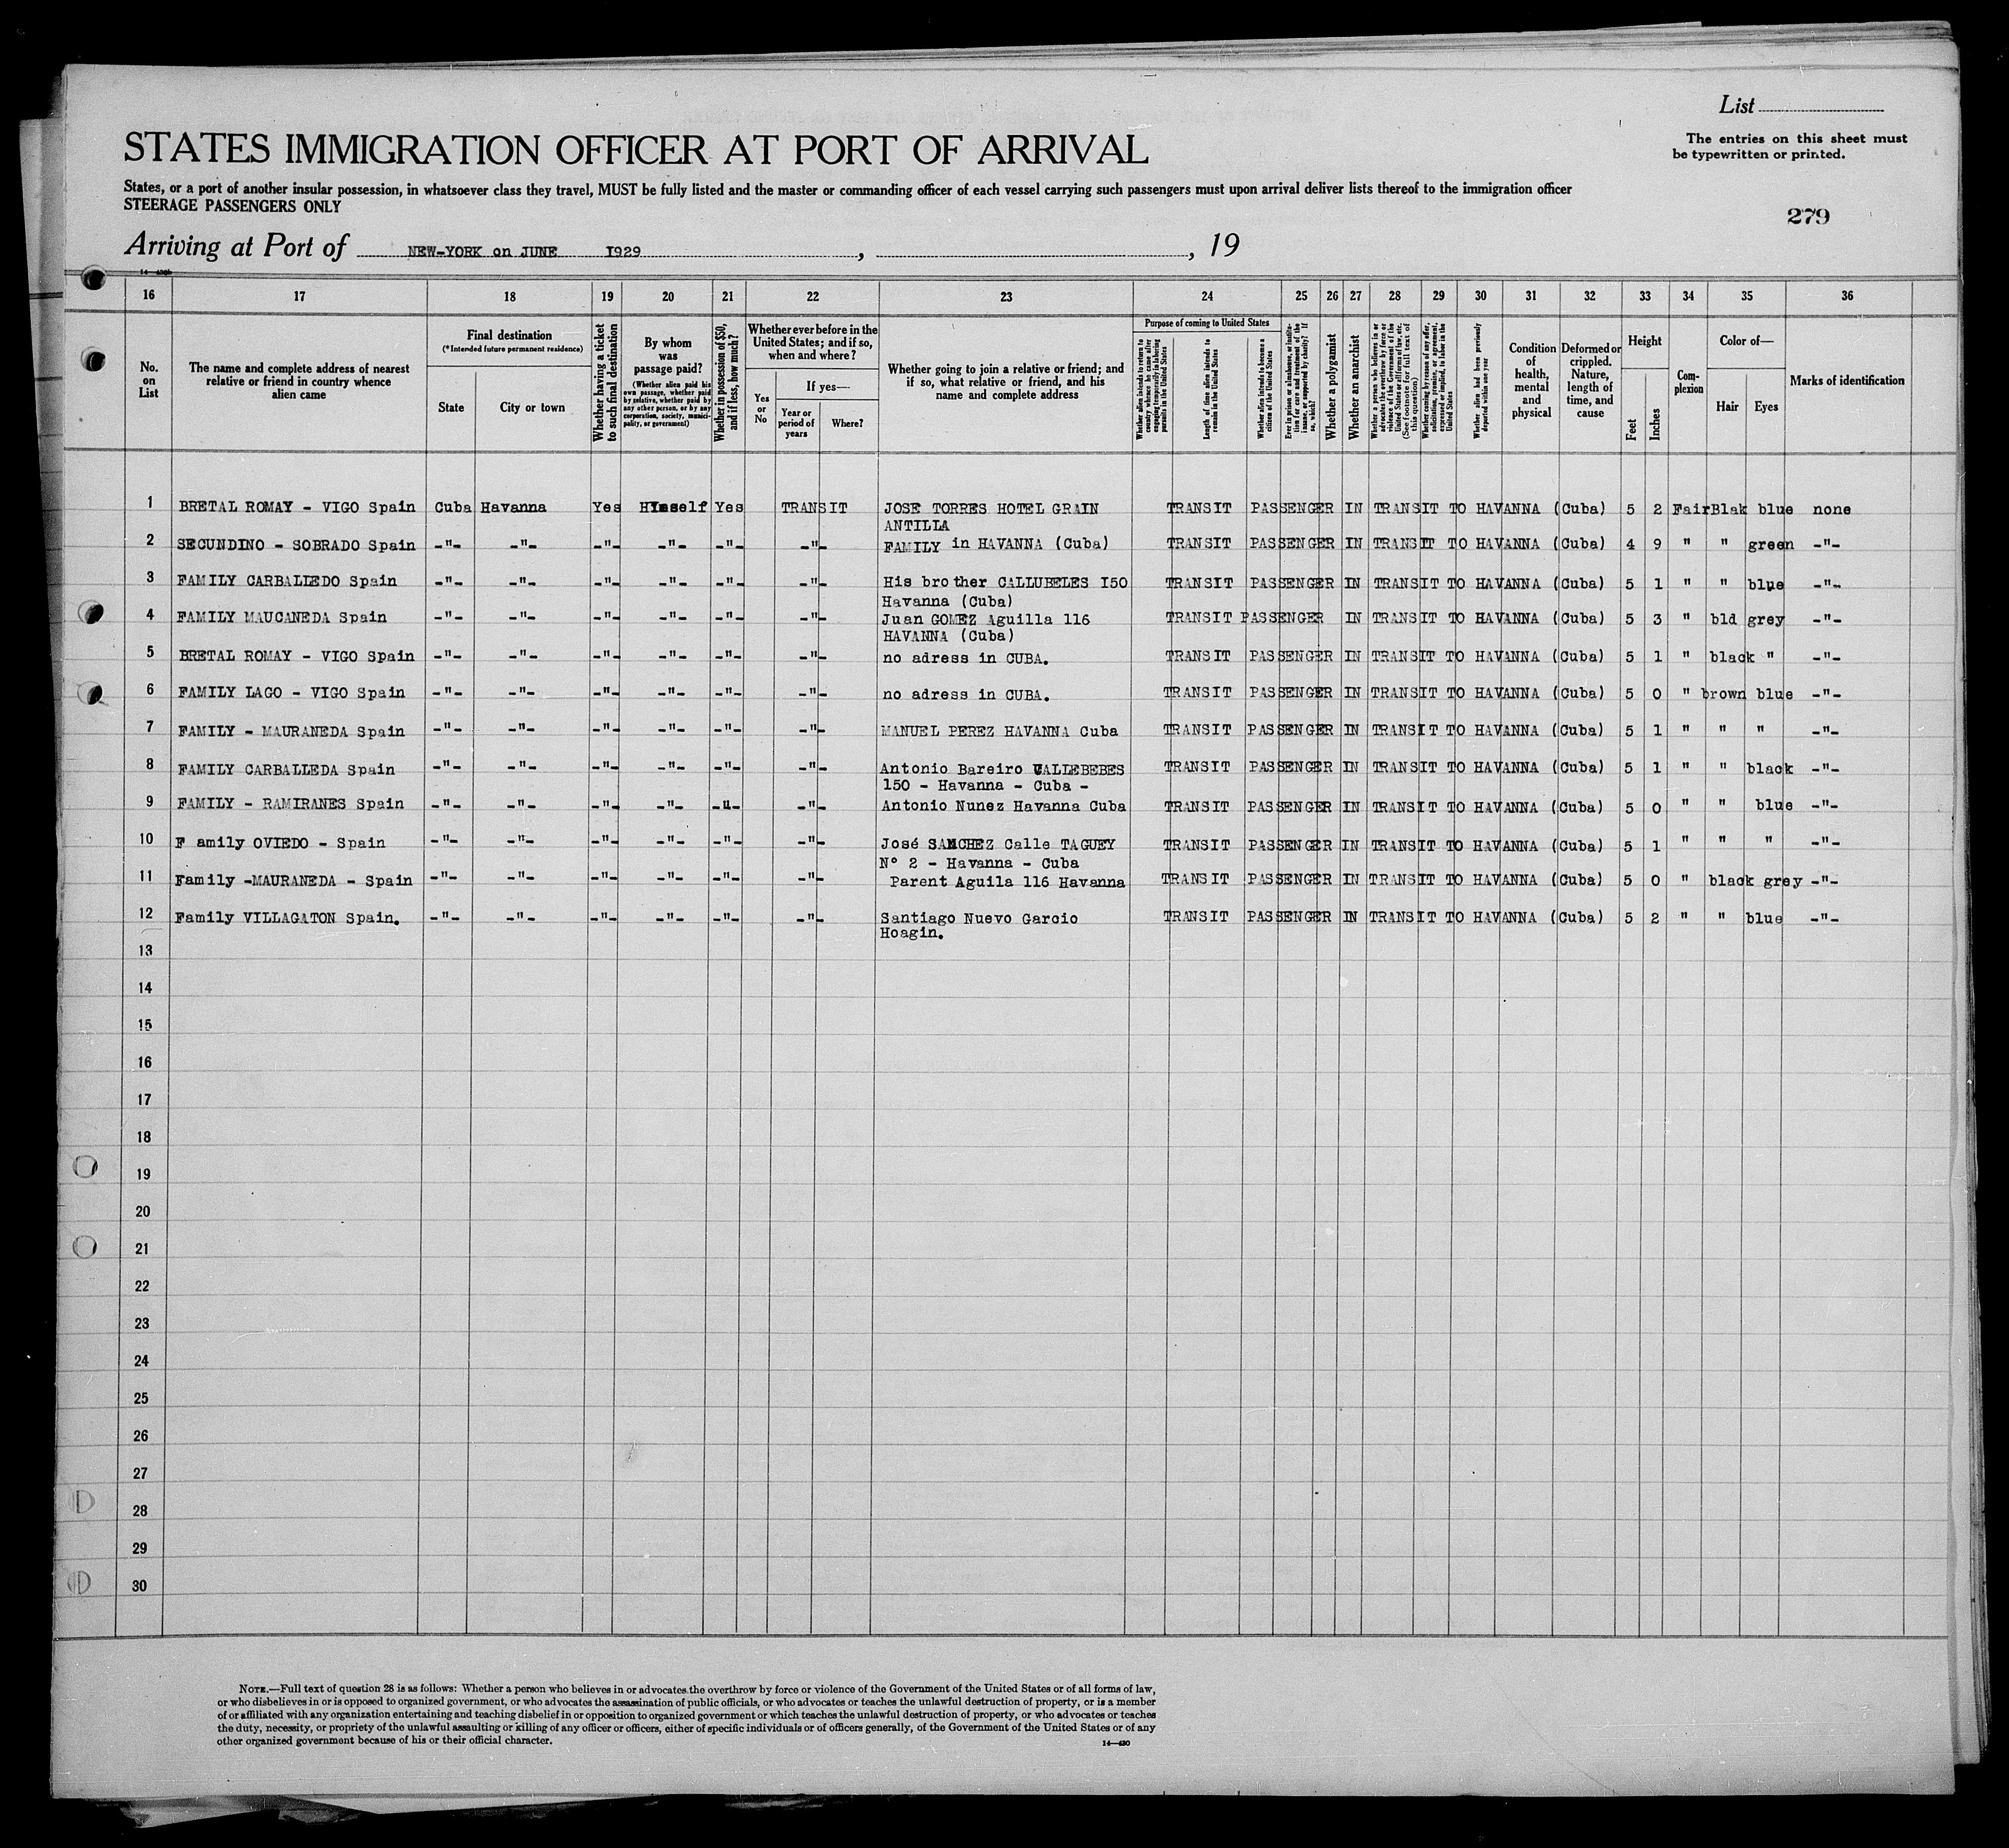 List
The entries on this sheet must
be typewritten or printed.
STATES IMMIGRATION OFFICER AT PORT OF ARRIVAL
States, or a port of another insular possession, in whatsoever class they travel, MUST be fully listed and the master or commanding officer of each vessel carrying such passengers must upon arrival deliver lists thereof to the immigration officer
STEERAGE PASSENGERS ONLY
279
Arriving at Port of NEW-YORK on JUNE I929 , , 19
16 17 18 19 20 21 22 23 24 25 26 27 28 29 30 31 32 33 34 35 36
No. on List
The name and complete address of nearest relative or friend in country whence alien came
Final destination
(*Intended future permanent residence)
State
City or town
Whether having a ticket to such final destination
By whom was passage paid?
(Whether alien paid his own passage, whether paid by relative, whether paid by any other person, or by any corporation, society, municipality, or government)
Whether in possession of $50, and if less, how much?
Whether ever before in the United States; and if so, when and where?
Yes or No
If yes—
Year or period of years
Where?
Whether going to join a relative or friend; and if so, what relative or friend, and his name and complete address
Purpose of coming to United States
Whether alien intends to return to country whence he came after engaging temporarily in laboring pursuits in the United States
Length of time alien intends to remain in the United States
Whether alien intends to become a citizen of the United States
Ever in prison or almshouse, or institution for care and treatment of the insane, or supported by charity? If so, which?
Whether a polygamist
Whether an anarchist
Whether a person who believes in or advocates the overthrow by force or violence of the Government of the United States or all forms of law, etc. (See footnote for full text of this question)
Whether coming by reason of any offer, solicitation, promise, or agreement, expressed or implied, to labor in the United States
Whether alien had been previously deported within one year
Condition of health, mental and physical
Deformed or crippled. Nature, length of time, and cause
Height
Feet
Inches
Complexion
Color of—
Hair
Eyes
Marks of identification
1 BRETAL ROMAY - VIGO Spain Cuba Havanna Yes Himself Yes TRANSIT JOSE TORRES HOTEL GRAIN TRANSIT PASSENGER IN TRANSIT TO HAVANNA (Cuba) 5 2 Fair Blak blue none
ANTILLA
2 SECUNDINO - SOBRADO Spain -"- -"- -"- -"- -"- -"- FAMILY in HAVANNA (Cuba) TRANSIT PASSENGER IN TRANSIT TO HAVANNA (Cuba) 4 9 " " green -"-
3 FAMILY CARBALLEDO Spain -"- -"- -"- -"- -"- -"- His brother CALLUBELES I50 TRANSIT PASSENGER IN TRANSIT TO HAVANNA (Cuba) 5 1 " " blue -"-
Havanna (Cuba)
4 FAMILY MAUCANEDA Spain -"- -"- -"- -"- -"- -"- Juan GOMEZ Aguilla 116 TRANSIT PASSENGER IN TRANSIT TO HAVANNA (Cuba) 5 3 " bld grey -"-
HAVANNA (Cuba)
5 BRETAL ROMAY - VIGO Spain -"- -"- -"- -"- -"- -"- no adress in CUBA. TRANSIT PASSENGER IN TRANSIT TO HAVANNA (Cuba) 5 1 " black " -"-
6 FAMILY LAGO - VIGO Spain -"- -"- -"- -"- -"- -"- no adress in CUBA. TRANSIT PASSENGER IN TRANSIT TO HAVANNA (Cuba) 5 0 " brown blue -"-
7 FAMILY - MAURANEDA Spain -"- -"- -"- -"- -"- -"- MANUEL PEREZ HAVANNA Cuba TRANSIT PASSENGER IN TRANSIT TO HAVANNA (Cuba) 5 1 " " " -"-
8 FAMILY CARBALLEDA Spain -"- -"- -"- -"- -"- -"- Antonio Bareiro CALLEBEBES TRANSIT PASSENGER IN TRANSIT TO HAVANNA (Cuba) 5 1 " " black -"-
150 - Havanna - Cuba -
9 FAMILY - RAMIRANES Spain -"- -"- -"- -"- -"- -"- Antonio Nunez Havanna Cuba TRANSIT PASSENGER IN TRANSIT TO HAVANNA (Cuba) 5 0 " " blue -"-
10 F amily OVIEDO - Spain -"- -"- -"- -"- -"- -"- José SANCHEZ Calle TAGUEY TRANSIT PASSENGER IN TRANSIT TO HAVANNA (Cuba) 5 1 " " " -"-
N° 2 - Havanna - Cuba
11 Family -MAURANEDA - Spain -"- -"- -"- -"- -"- -"- Parent Aguila 116 Havanna TRANSIT PASSENGER IN TRANSIT TO HAVANNA (Cuba) 5 0 " black grey -"-
12 Family VILLAGATON Spain. -"- -"- -"- -"- -"- -"- Santiago Nuevo Garcio TRANSIT PASSENGER IN TRANSIT TO HAVANNA (Cuba) 5 2 " " blue -"-
Hoagin.
13
14
15
16
17
18
19
20
21
22
23
24
25
26
27
28
29
30
NOTE.—Full text of question 28 is as follows: Whether a person who believes in or advocates the overthrow by force or violence of the Government of the United States or of all forms of law,
or who disbelieves in or is opposed to organized government, or who advocates the assassination of public officials, or who advocates or teaches the unlawful destruction of property, or is a member
of or affiliated with any organization entertaining and teaching disbelief in or opposition to organized government or which teaches the unlawful destruction of property, or who advocates or teaches
the duty, necessity, or propriety of the unlawful assaulting or killing of any officer or officers, either of specific individuals or of officers generally, of the Government of the United States or of any
other organized government because of his or their official character.
14—430